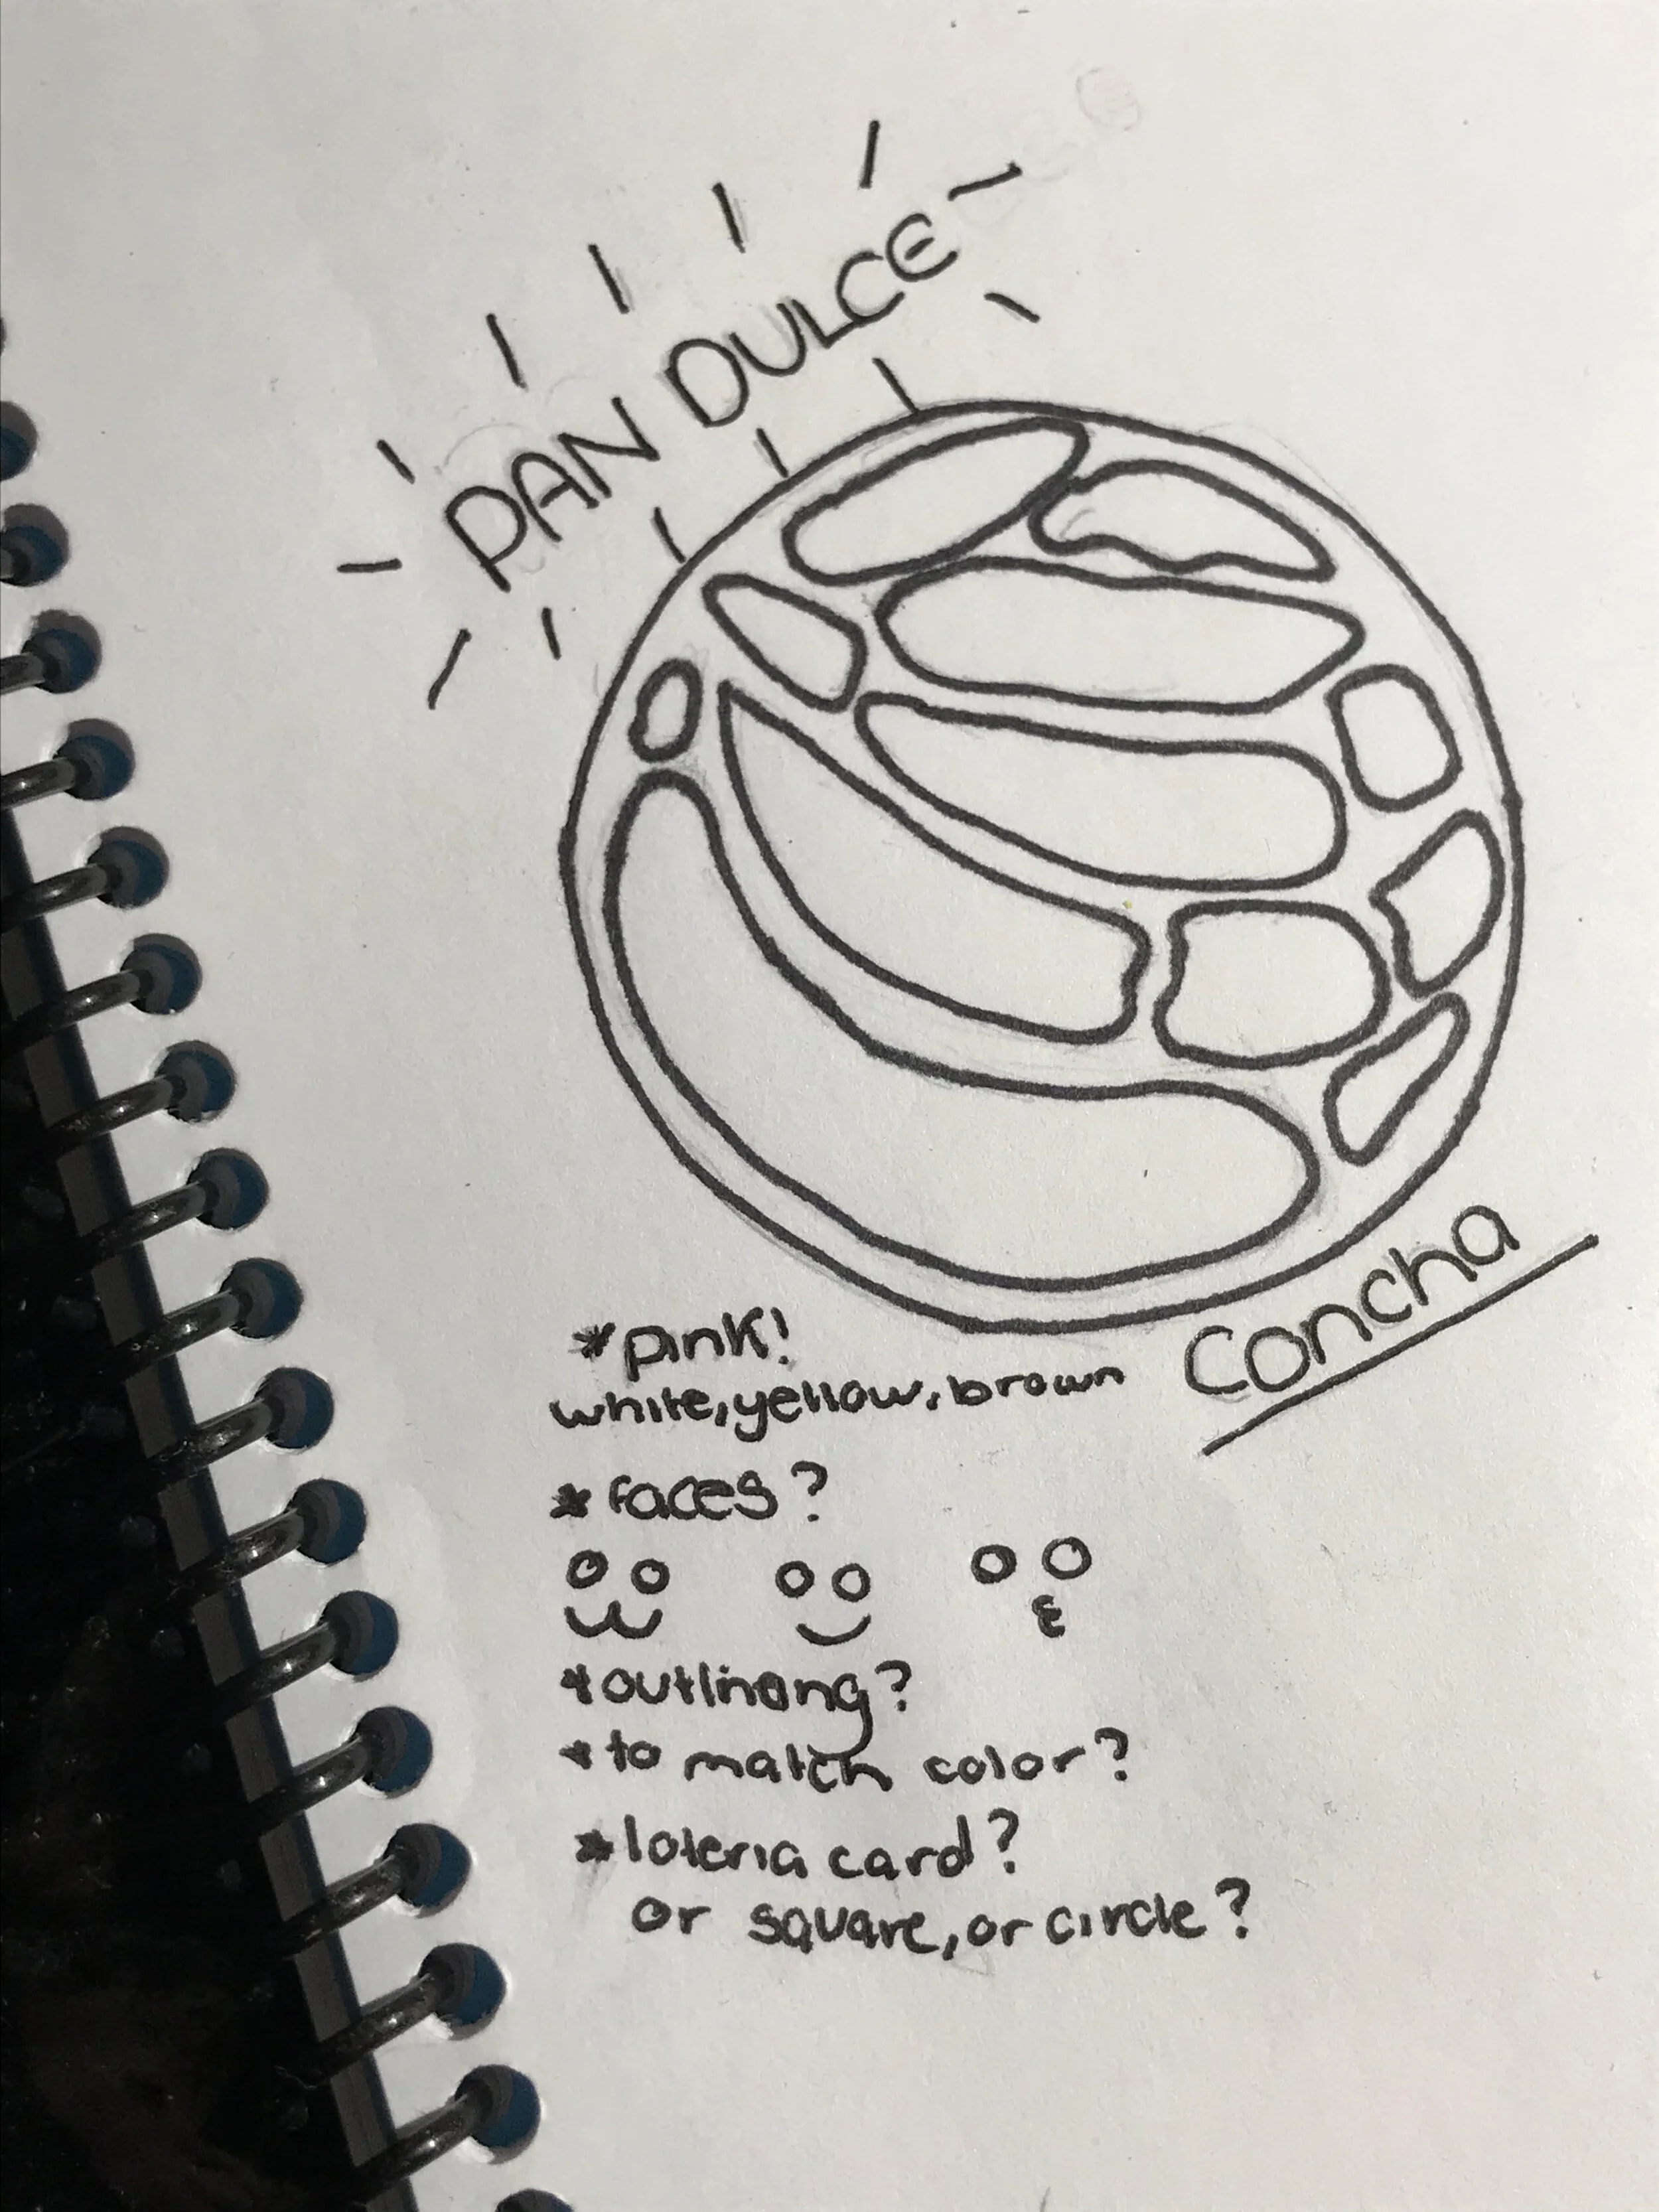 PAN DULCE
Concha
*pink!
white, yellow, brown
*faces?
*outlinong?
*to match color?
*loteria card?
or square, or circle?